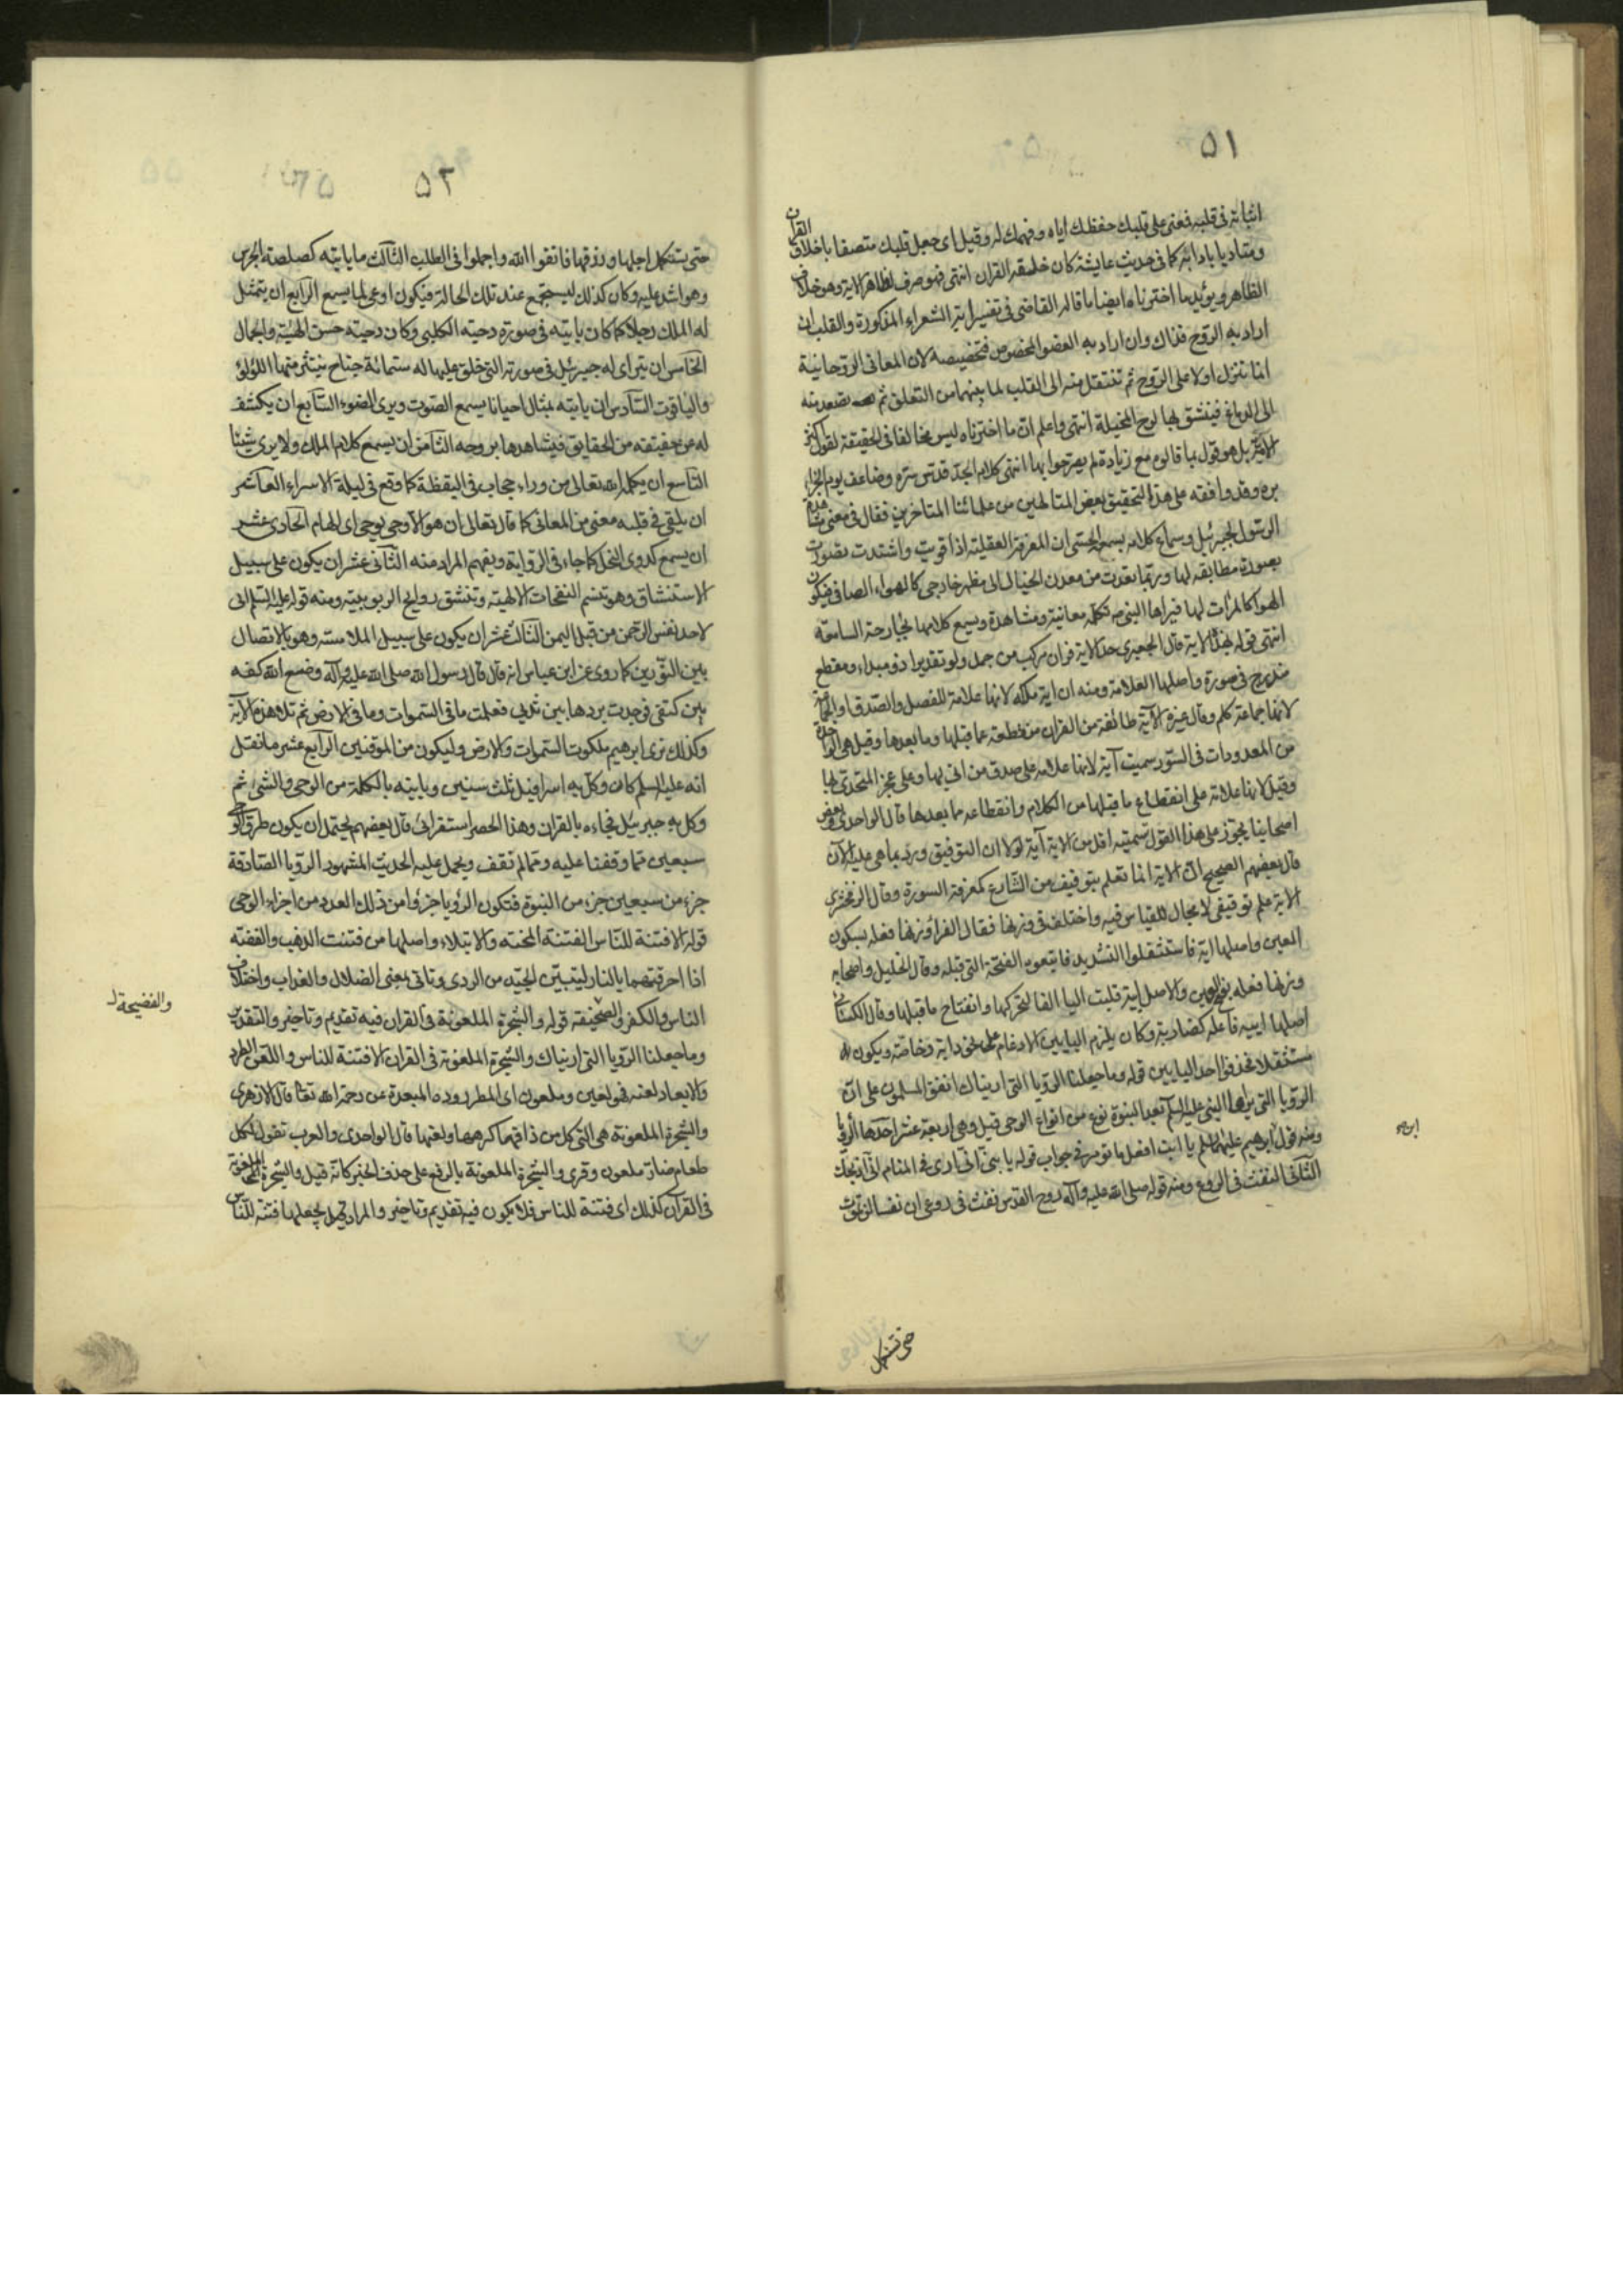 ٥١
اثباته فى قلبه فعنى على قلبك حفظك اياه وفهمك له وقيل اى جعل قلبك متصفا باخلاق القران
ومتاديا بادابه كما فى حديث عايشة كان خلقه القران انتهى فهو صرف لظاهر الاية وهو خلاف
الظاهر ويؤيد ما اخترناه ايضا ما قاله القاضى فى تفسير اية الشعراء المذكورة والقلب ان
اراد به الروح فذاك وان اراد به العضو المخصوص فتخصيصه لان المعانى الروحانية
انما تنزل اولا على الروح ثم تنتقل منه الى القلب لما بينهما من التعلق ثم يتصعد منه
الى الدماغ فينتقش بها لوح المخيلة انتهى واعلم ان ما اخترناه ليس مخالفا فى الحقيقة لقول اكثر
بل هو قول بما قالوه مع زيادة لم يصرحوا بها انتهى كلام الجد قدس سره وضاعف يوم الجزاء
بره وقد وافقه على هذا التحقيق بعض المتالهين من علمائنا المتاخرين فقال فى معنى
الرسول لجبرئيل وسماع كلامه بسمعه الحسى ان المعرفة العقلية اذا قويت واشتدت تصورت
بصورة مطابقة لها وربما تعدت من معدن الخيال الى مظهر خارجى كالهواء الصافى فيكون
الهوا كالمرات لها فيراها النبى ص تكلمه معاينة ومشاهدة ويسمع كلامها بجارحة السامعة
انتهى قوله بهذه الاية قال الجعبرى حد الاية قران مركب من جمل ولو تقديرا ذو مبداء ومقطع
مندرج فى سورة واصلها العلامة ومنه ان اية ملكه لانها علامة للفصل والصدق او الجماعة
لانها جماعة كلم وقال غيره الاية طائفة من القران منقطعة عما قبلها وما بعدها وقيل هى الواحدة
من المعدودات فى السور سميت آية لانها علامة على صدق من اتى بها وعلى عجز المتحدى بها
وقيل لانها علامة على انقطاع ما قبلها من الكلام وانقطاعه مما بعدها قال الواحدى وبعض
اصحابنا يجوز على هذا القول تسمية اقل من الاية آية لولا ان التوفيق ورد بما هى عليه الان
قال بعضهم الصحيح ان الاية انما تعلم بتوقيف من الشارع كمعرفة السورة وقال الزمخشرى
الاية علم توقيفى لا مجال للقياس فيه واختلف فى وزنها فقال الفرا وزنها فعله بسكون
العين واصلها اية فاستثقلوا التشديد فاتبعوه الفتحة التى قبله وقال الخليل واصحابه
وزنها فعله بفتح العين والاصل ايية قلبت اليا الفا لتحركها وانفتاح ما قبلها وقال الكسائى
اصلها ايية فاعله كضاربة وكان يلزم اليايين الادغام على نحو داية وخاصة ويكون
مستثقلا فحذفوا احد اليايين قوله وما جعلنا الرويا التى اريناك اتفق المسلمون على ان
الرويا التى يراها النبى عليه السلم بعد النبوة نوع من انواع الوحى قيل وهى اربعة عشر احدها الرويا
ومنه قول ابرهيم عليهما السلم يا ابت افعل ما تومر فى جواب قوله يا بنى انى ارى فى المنام انى اذبحك
الثانى النفث فى الروع ومنه قوله صلى الله عليه وآله روح القدس نفث فى روعى ان نفسا لن تموت
حتى تستكمل
٥٢
حتى تستكمل اجلها ورزقها فاتقوا الله واجملوا فى الطلب الثالث ما ياتيه كصلصة الجرس
وهو اشد عليه وكان كذلك ليستجمع عند تلك الحالة فيكون اوعى لما يسمع الرابع ان يتمثل
له الملك رجلا كما كان ياتيه فى صورة دحيته الكلبى وكان دحيته حسن الهيئة والجمال
الخامس ان يترآى له جبرئيل فى صورته التى خلق عليها له ستمائة جناح ينتثر منها اللؤلؤ
والياقوت السادس ان ياتيه بمثال احيانا يسمع الصوت ويرى الضوء السابع ان يكشف
له عن حقيقته من الحقايق فيشاهدها بروحه الثامن ان يسمع كلام الملك ولا يرى شيئا
التاسع ان يكلمه الله تعالى من وراء حجاب فى اليقظة كما وقع فى ليلة الاسراء العاشر
ان يلقى فى قلبه معنى من المعانى كما قال تعالى ان هو الا وحى يوحى اى الهام الحادى عشر
ان يسمع كدوى النحل كما جاء فى الرواية ويفهم المراد منه الثانى عشر ان يكون على سبيل
الاستنشاق وهو تنسم النفحات الالهية وتنشق روايح الربوبية ومنه قوله عليه السلم انى
لاجد نفس الرحمن من قبل اليمن الثالث عشر ان يكون على سبيل الملامسة وهو بالاتصال
بين النورين كما روى عن ابن عباس انه قال قال رسول الله صلى الله عليه وآله وضع الله كفه
بين كتفى فوجدت بردها بين ثديى فعلمت ما فى السموات وما فى الارض ثم تلا هذه الاية
وكذلك نرى ابرهيم ملكوت السموات والارض وليكون من الموقنين الرابع عشر ما نقل
انه عليه السلم كان وكل به اسرافيل ثلث سنين وياتيه بالكلمة من الوحى والشىء ثم
وكل به جبرئيل فجاءه بالقران وهذا الحصر استقرائى قال بعضهم يحتمل ان يكون طرق الوحى
سبعين مما وقفنا عليه ومما لم نقف ويحمل عليه الحديث المشهود الرويا الصادقة
جزء من سبعين جزء من النبوة فتكون الرؤيا جزؤا من ذلك العدد من اجزاء الوحى
قوله الا فتنة للناس الفتنة المحنة والابتلاء واصلها من فتنت الذهب والفضة
اذا احرقتهما بالنار ليتبين الجيد من الردى وتاتى بمعنى الضلال والعذاب واختلاف
الناس والكفر والفضيحة قوله والشجرة الملعونة فى القران فيه تقديم وتاخير والتقدير
والفضيحة
وما جعلنا الرويا التى اريناك والشجرة الملعونة فى القران الا فتنة للناس واللعن الطرد
والابعاد لعنه فهو لعين وملعون اى المطروده المبعدة عن رحمة الله تعا قال الازهرى
والشجرة الملعونة هى التى كل من ذاقها كرهها ولعنها قال الواحدى والعرب تقول لكل
طعام ضار ملعون وقرى والشجرة الملعونة بالرفع على حذف الخبر كانه قيل والشجرة الملعونة
فى القرآن كذلك اى فتنة للناس فلا يكون فيه تقديم وتاخير والمراد بجعلها فتنة للناس